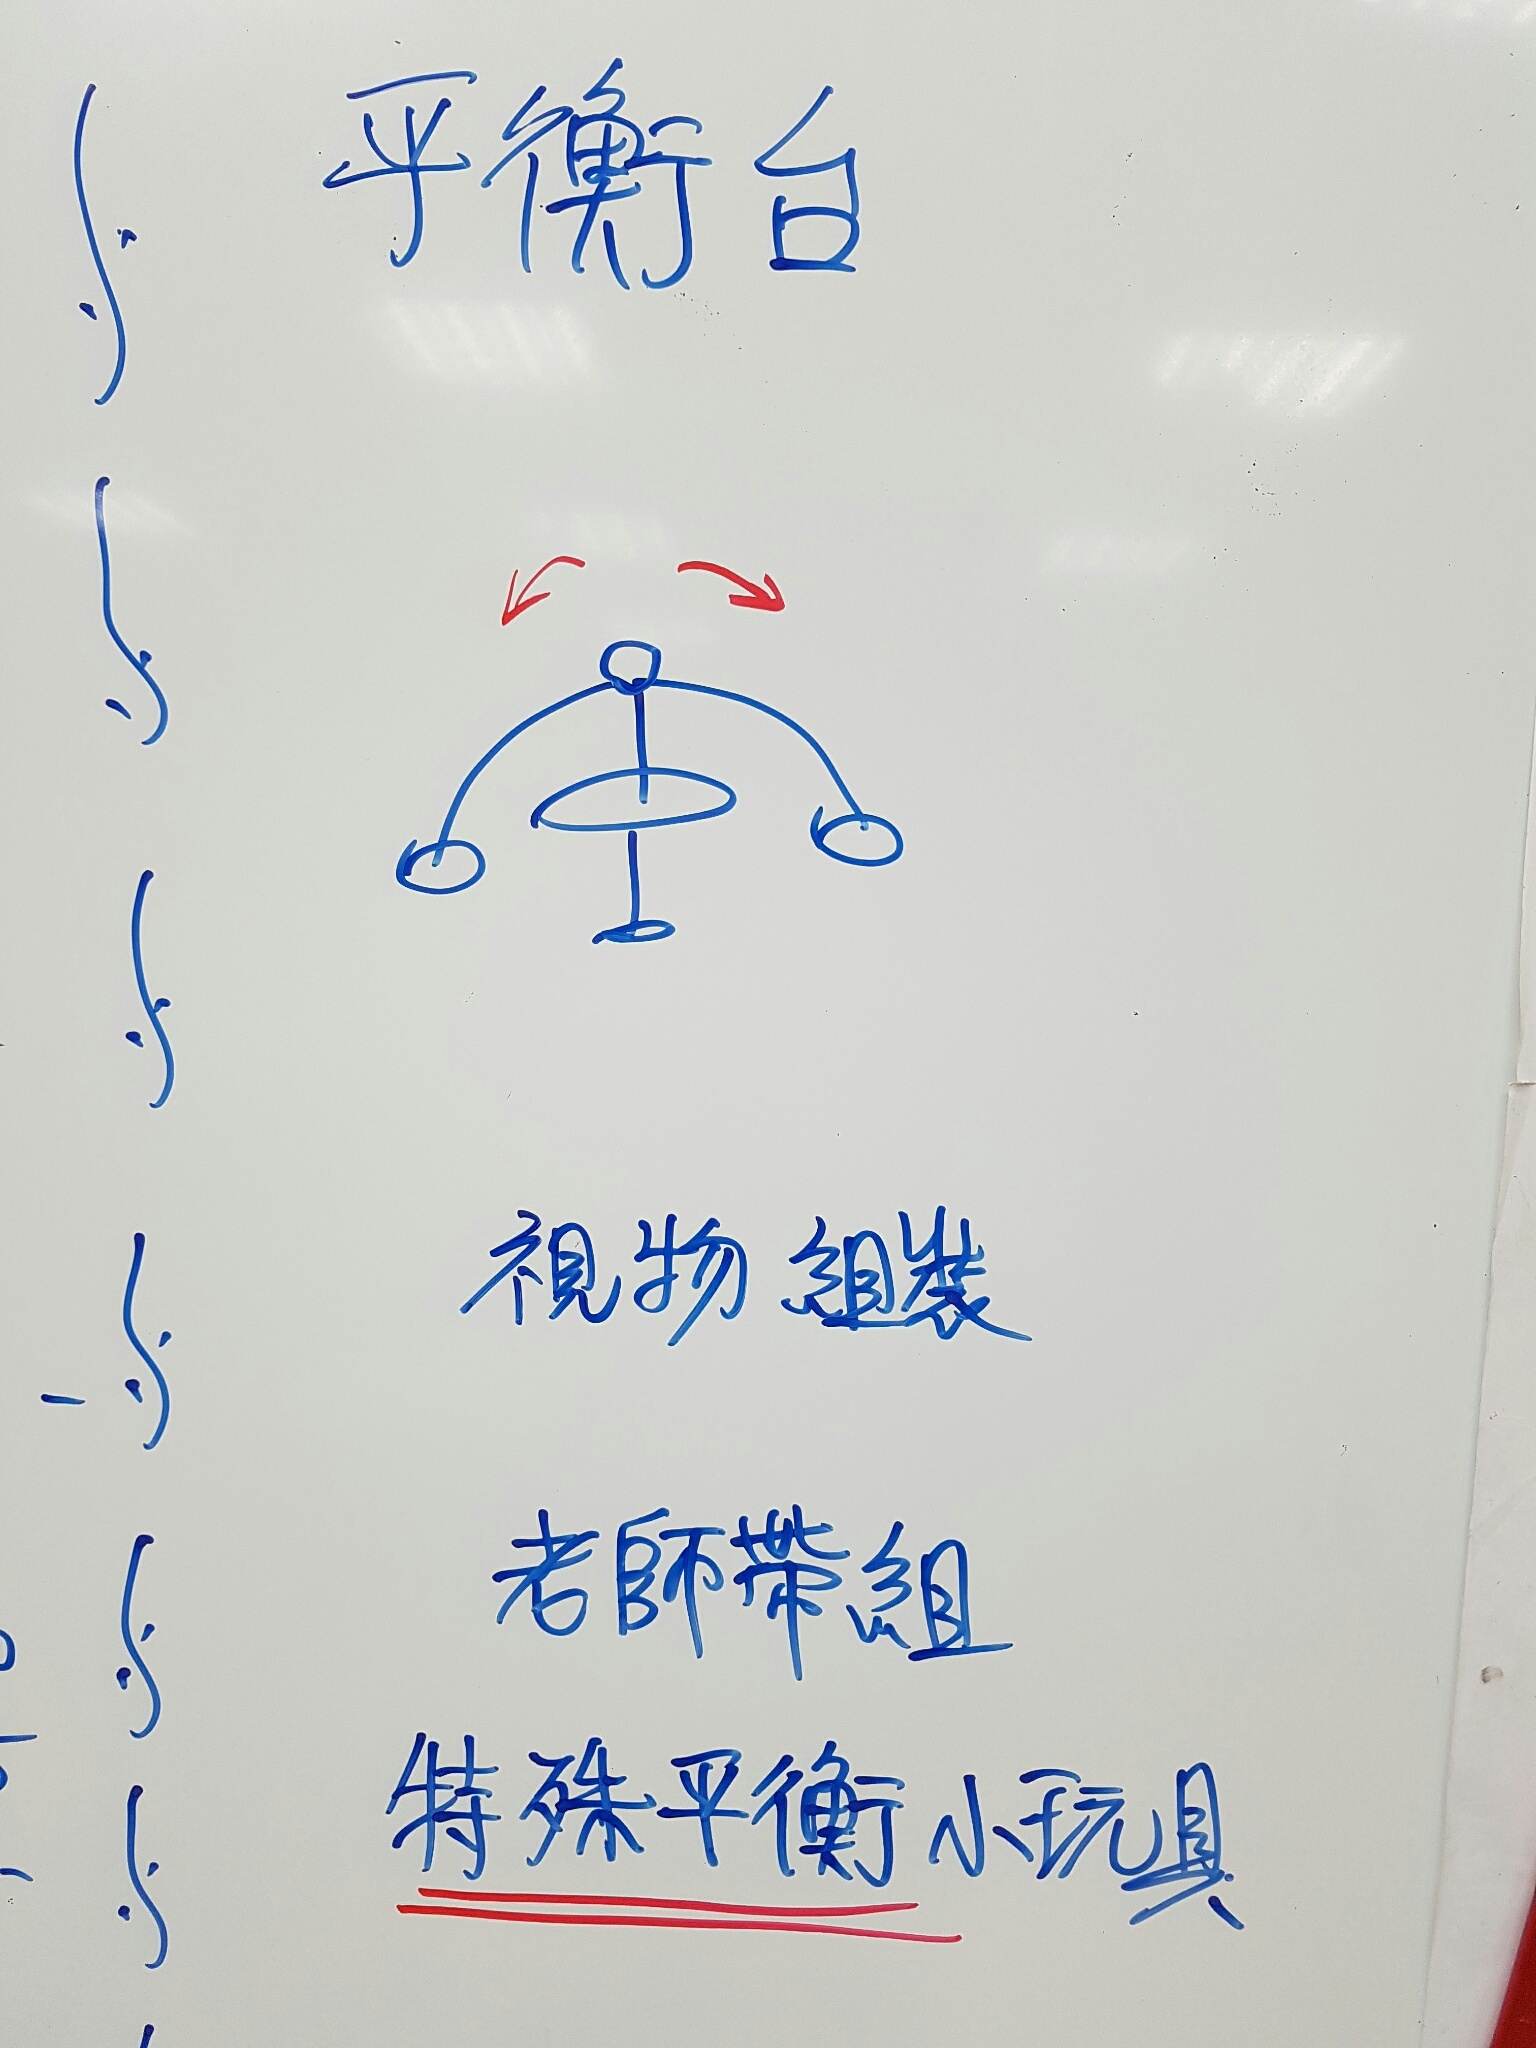 平衡台
視物組裝
老師帶組
特殊平衡小玩具